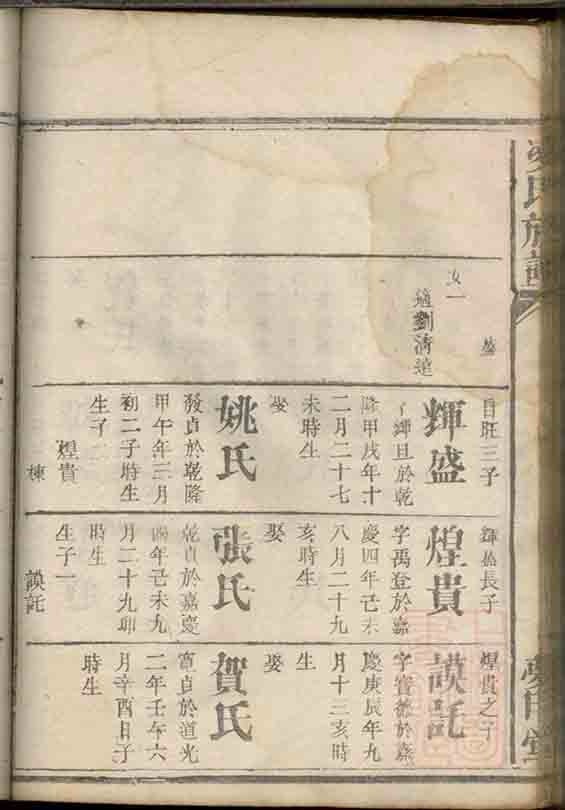 氏族譜
女一
適劉清蓮
自旺三子
輝盛
字輝且於乾
隆甲戌年十
二月二十七
未時生
娶
姚氏
發貞於乾隆
甲午年三月
初二子時生
生子二
煌貴
棟
輝盛長子
煌貴
字禹登於嘉
慶四年己未
八月二十九
亥時生
娶
張氏
乾貞於嘉慶
四年己未九
月二十九卯
時生
生子一
謨託
煌貴之子
謨託
字寶德於嘉
慶庚辰年九
月十三亥時
生
娶
賀氏
寬貞於道光
二年壬午六
月辛酉日子
時生